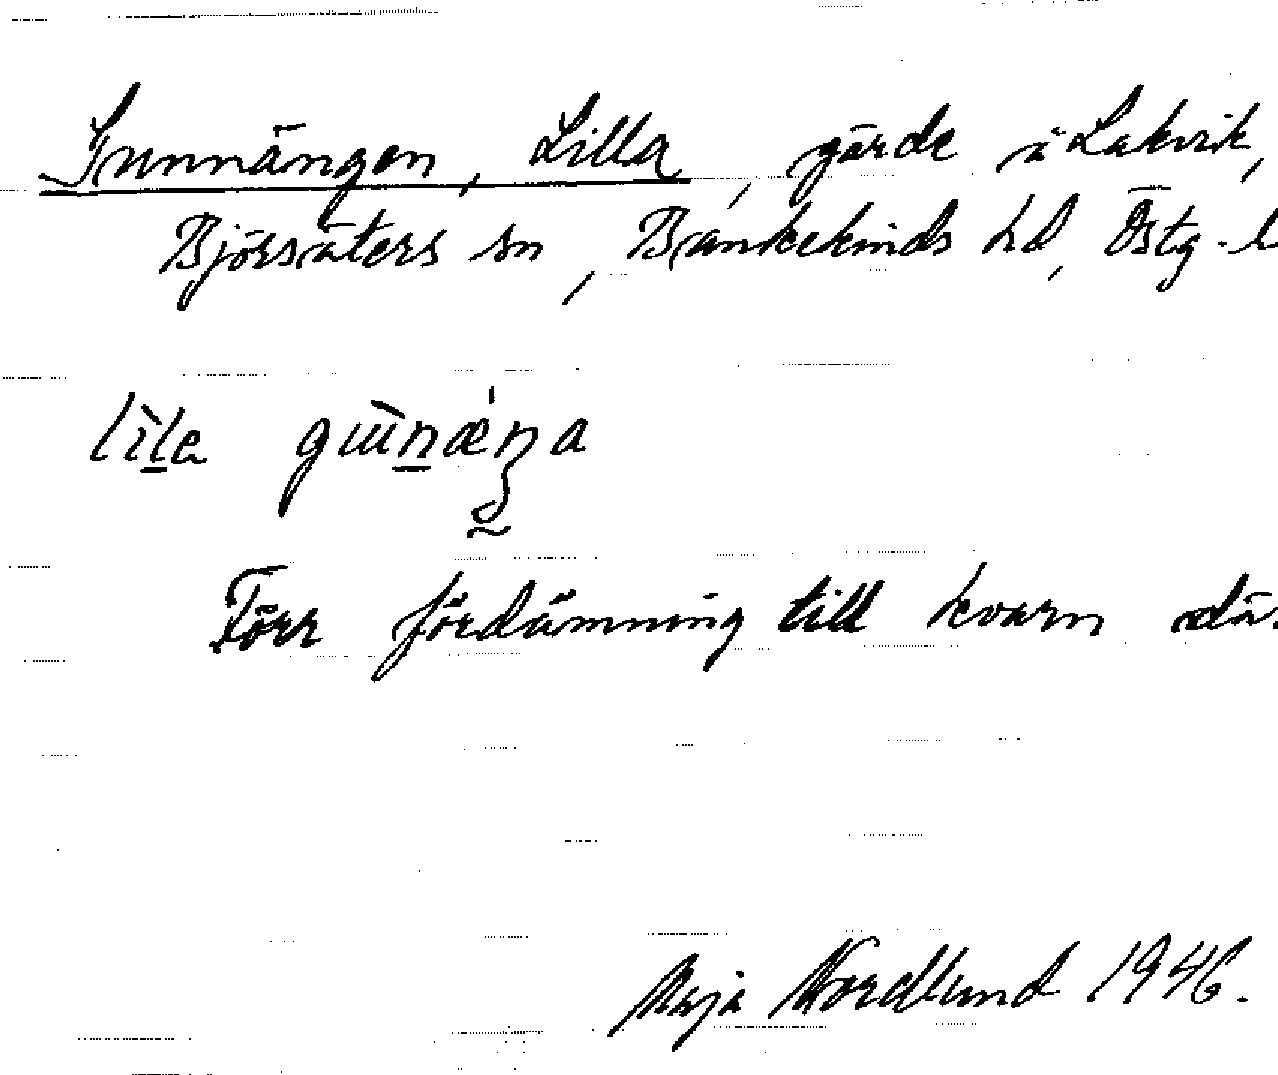 Gunnängen, Lilla, gärde å Lakvik,
Björsäters sn, Bankekinds hd, Östg.l
lìla gɯ̀nǽŋa
Förr fördämning till kvarn där.
Maja Nordlund 1946.